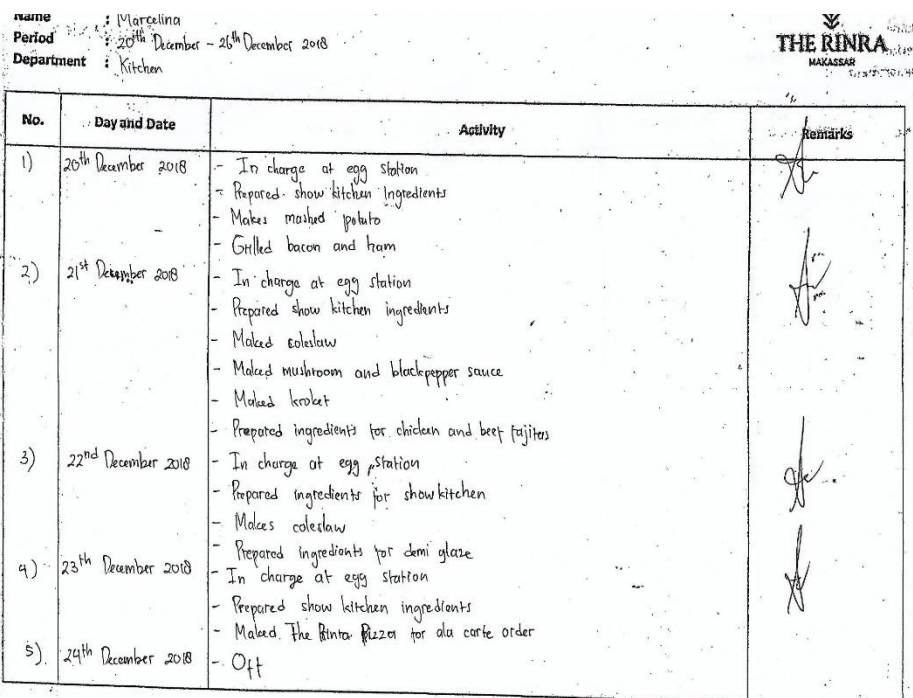 Name : Marcelina
Period : 20th December - 26th December 2018
Department : Kitchen
THE RINRA
MAKASSAR
No. Day and Date Activity Remarks
1) 20th December 2018 - In charge at egg station
- Prepared show kitchen Ingredients
- Makes mashed potato
- Grilled bacon and ham
2) 21st December 2018 - In charge at egg station
- Prepared show kitchen ingredients
- Maked coleslaw
- Maked mushroom and blackpepper sauce
- Maked kroket
- Prepared ingredients for chicken and beef fajitas
3) 22nd December 2018 - In charge at egg station
- Prepared ingredients for show kitchen
- Makes coleslaw
- Prepared ingredients for demi glaze
4) 23th December 2018 - In charge at egg station
- Prepared show kitchen ingredients
- Maked The Rinra Pizza for ala carte order
5) 24th December 2018 - Off